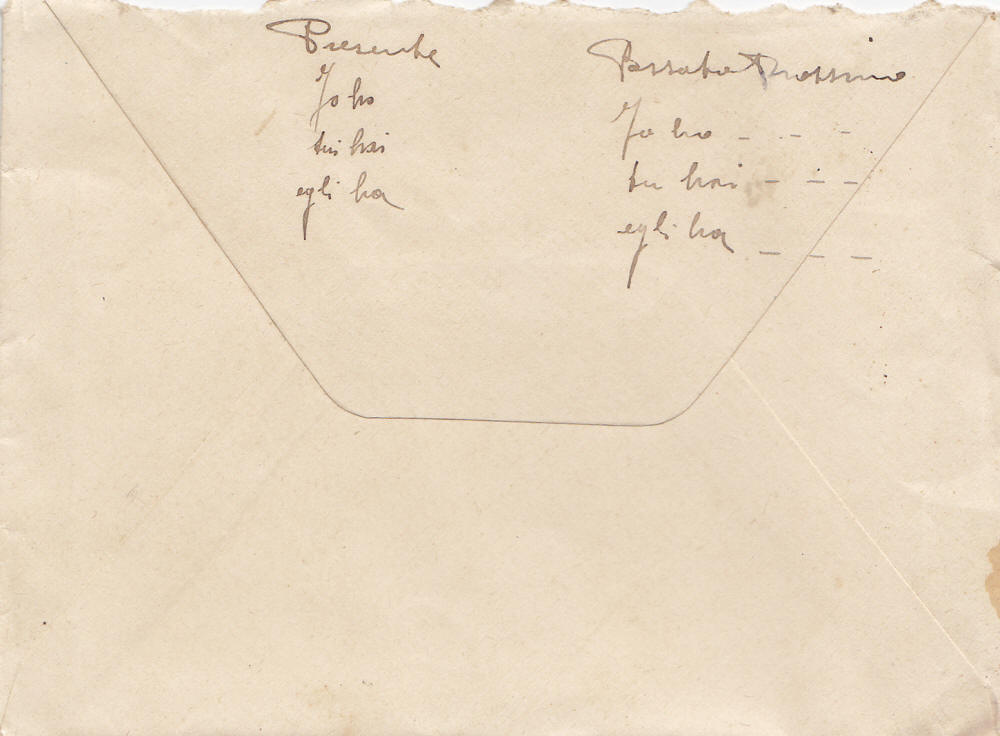 Presente
Jo ho
tu hai
egli ha
Passato Prossimo
Jo ho - - -
tu hai - - -
egli ha - - -